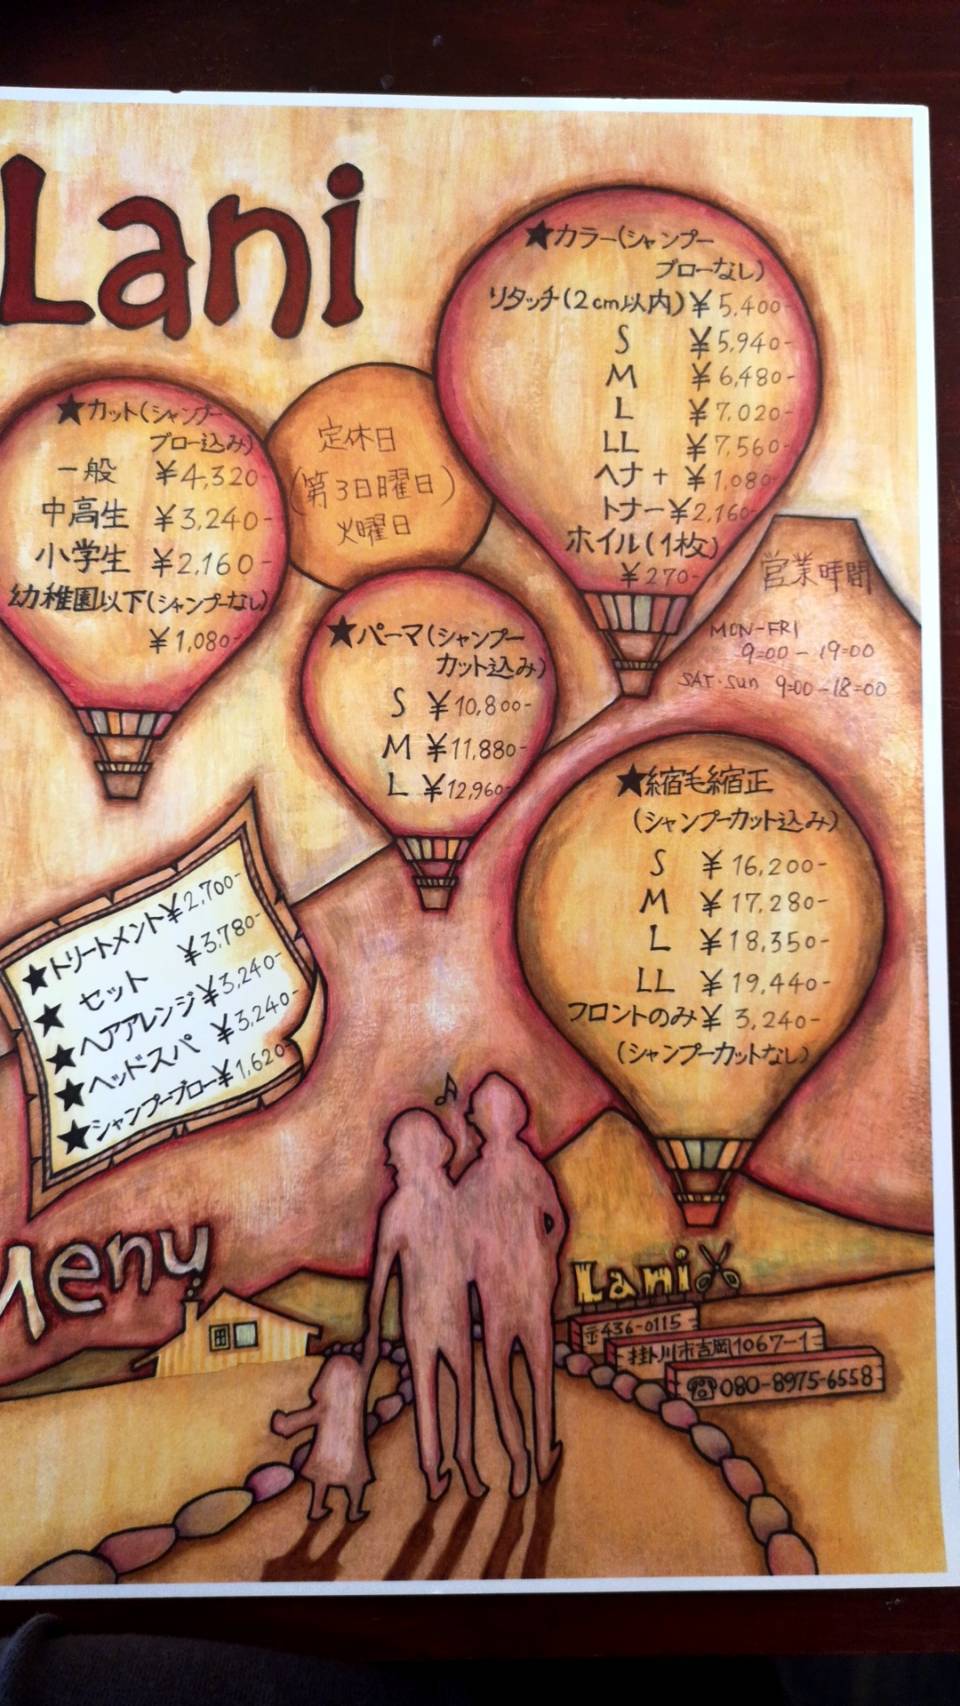 Lani
★カラー(シャンプー
ブローなし)
リタッチ(2cm以内)¥5,400-
S ¥5,940-
M ¥6,480-
L ¥7,020-
LL ¥7,560-
ヘナ+ ¥1,080-
トナー¥2,160-
ホイル(1枚)
¥270-
★カット(シャンプー
ブロー込み)
一般 ¥4,320-
中高生 ¥3,240-
小学生 ¥2,160-
幼稚園以下(シャンプーなし)
¥1,080-
定休日
(第3日曜日)
火曜日
営業時間
MON-FRI
9=00-19=00
SAT・Sun 9=00-18=00
★パーマ(シャンプー
カット込み)
S ¥10,800-
M ¥11,880-
L ¥12,960-
★縮毛縮正
(シャンプーカット込み)
S ¥16,200-
M ¥17,280-
L ¥18,350-
LL ¥19,440-
フロントのみ¥3,240-
(シャンプーカットなし)
★トリートメント¥2,700-
★セット ¥3,780-
★ヘアアレンジ¥3,240-
★ヘッドスパ ¥3,240-
★シャンプーブロー¥1,620-
Menu
Lani
〒436-0115
掛川市吉岡1067-1
☎080-8975-6558